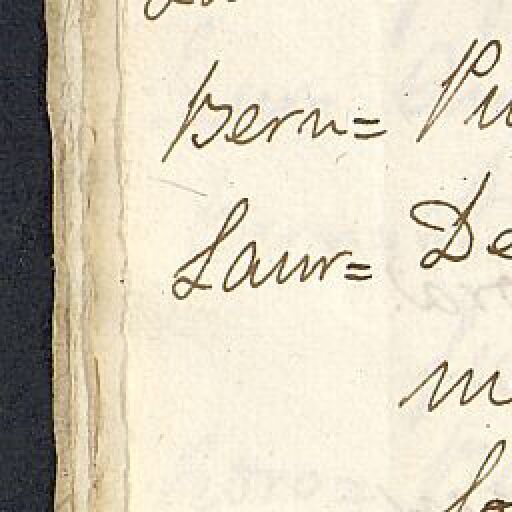 Bern= Pu
Laur= De
m